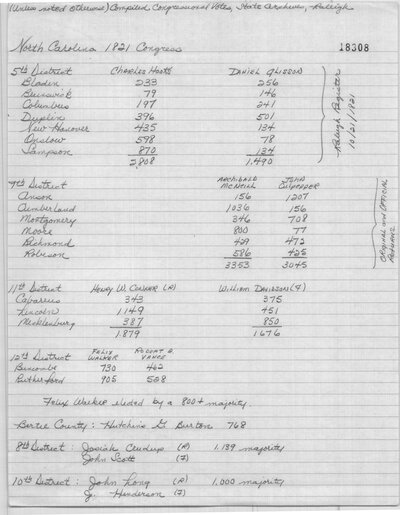 (Unless noted otherwise) Compiled Congressional Votes, State Archives, Raleigh
North Carolina 1821 Congress 18308
5th District Charles Hooks Daniel Glisson
Bladen 233 256
Brunswick 79 146
Columbus 197 241
Duplin 396 501
New Hanover 435 134
Onslow 598 78
Sampson 870 134
2808 1,490
Raleigh Register
10/21/1821
7th District Archibald McNeill John Culpepper
Anson 156 1207
Cumberland 1036 156
Montgomery 346 708
Moore 800 77
Richmond 429 472
Robeson 586 425
3353 3045
Original and Official
Returns
11th District Henry W. Conner (R) William Davidson (F)
Cabarrus 343 375
Lincoln 1,149 451
Mecklenburg 387 850
1,879 1676
12th District Felix Walker Robert B. Vance
Buncombe 730 462
Rutherford 905 508
Felix Walker elected by a 800+ majority
Bertie County: Hutchins G. Burton 768
8th District: Josiah Crudup (R) 1,139 majority
John Scott (F)
10th District: John Long (R) 1,000 majority
J. Henderson (F)